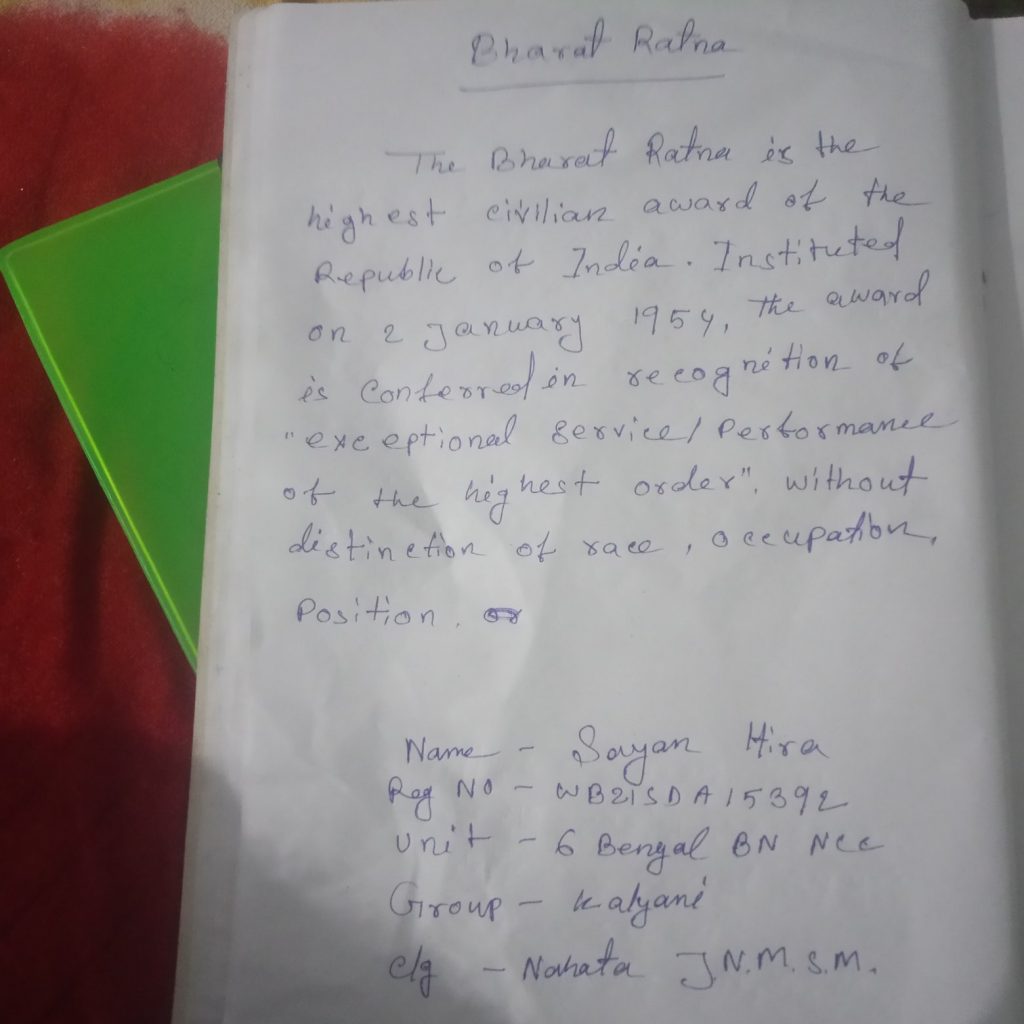 Bharat Ratna
The Bharat Ratna is the
highest civilian award of the
Republic of India. Instituted
on 2 January 1954, the award
is Conferred in recognition of
"exceptional service/Performance
of the highest order", without
distinction of race, occupation,
Position.
Name - Sayan Hira
Reg NO - WB21SDA15392
Unit - 6 Bengal BN NCC
Group - Kalyani
clg - Nahata J.N.M.S.M.